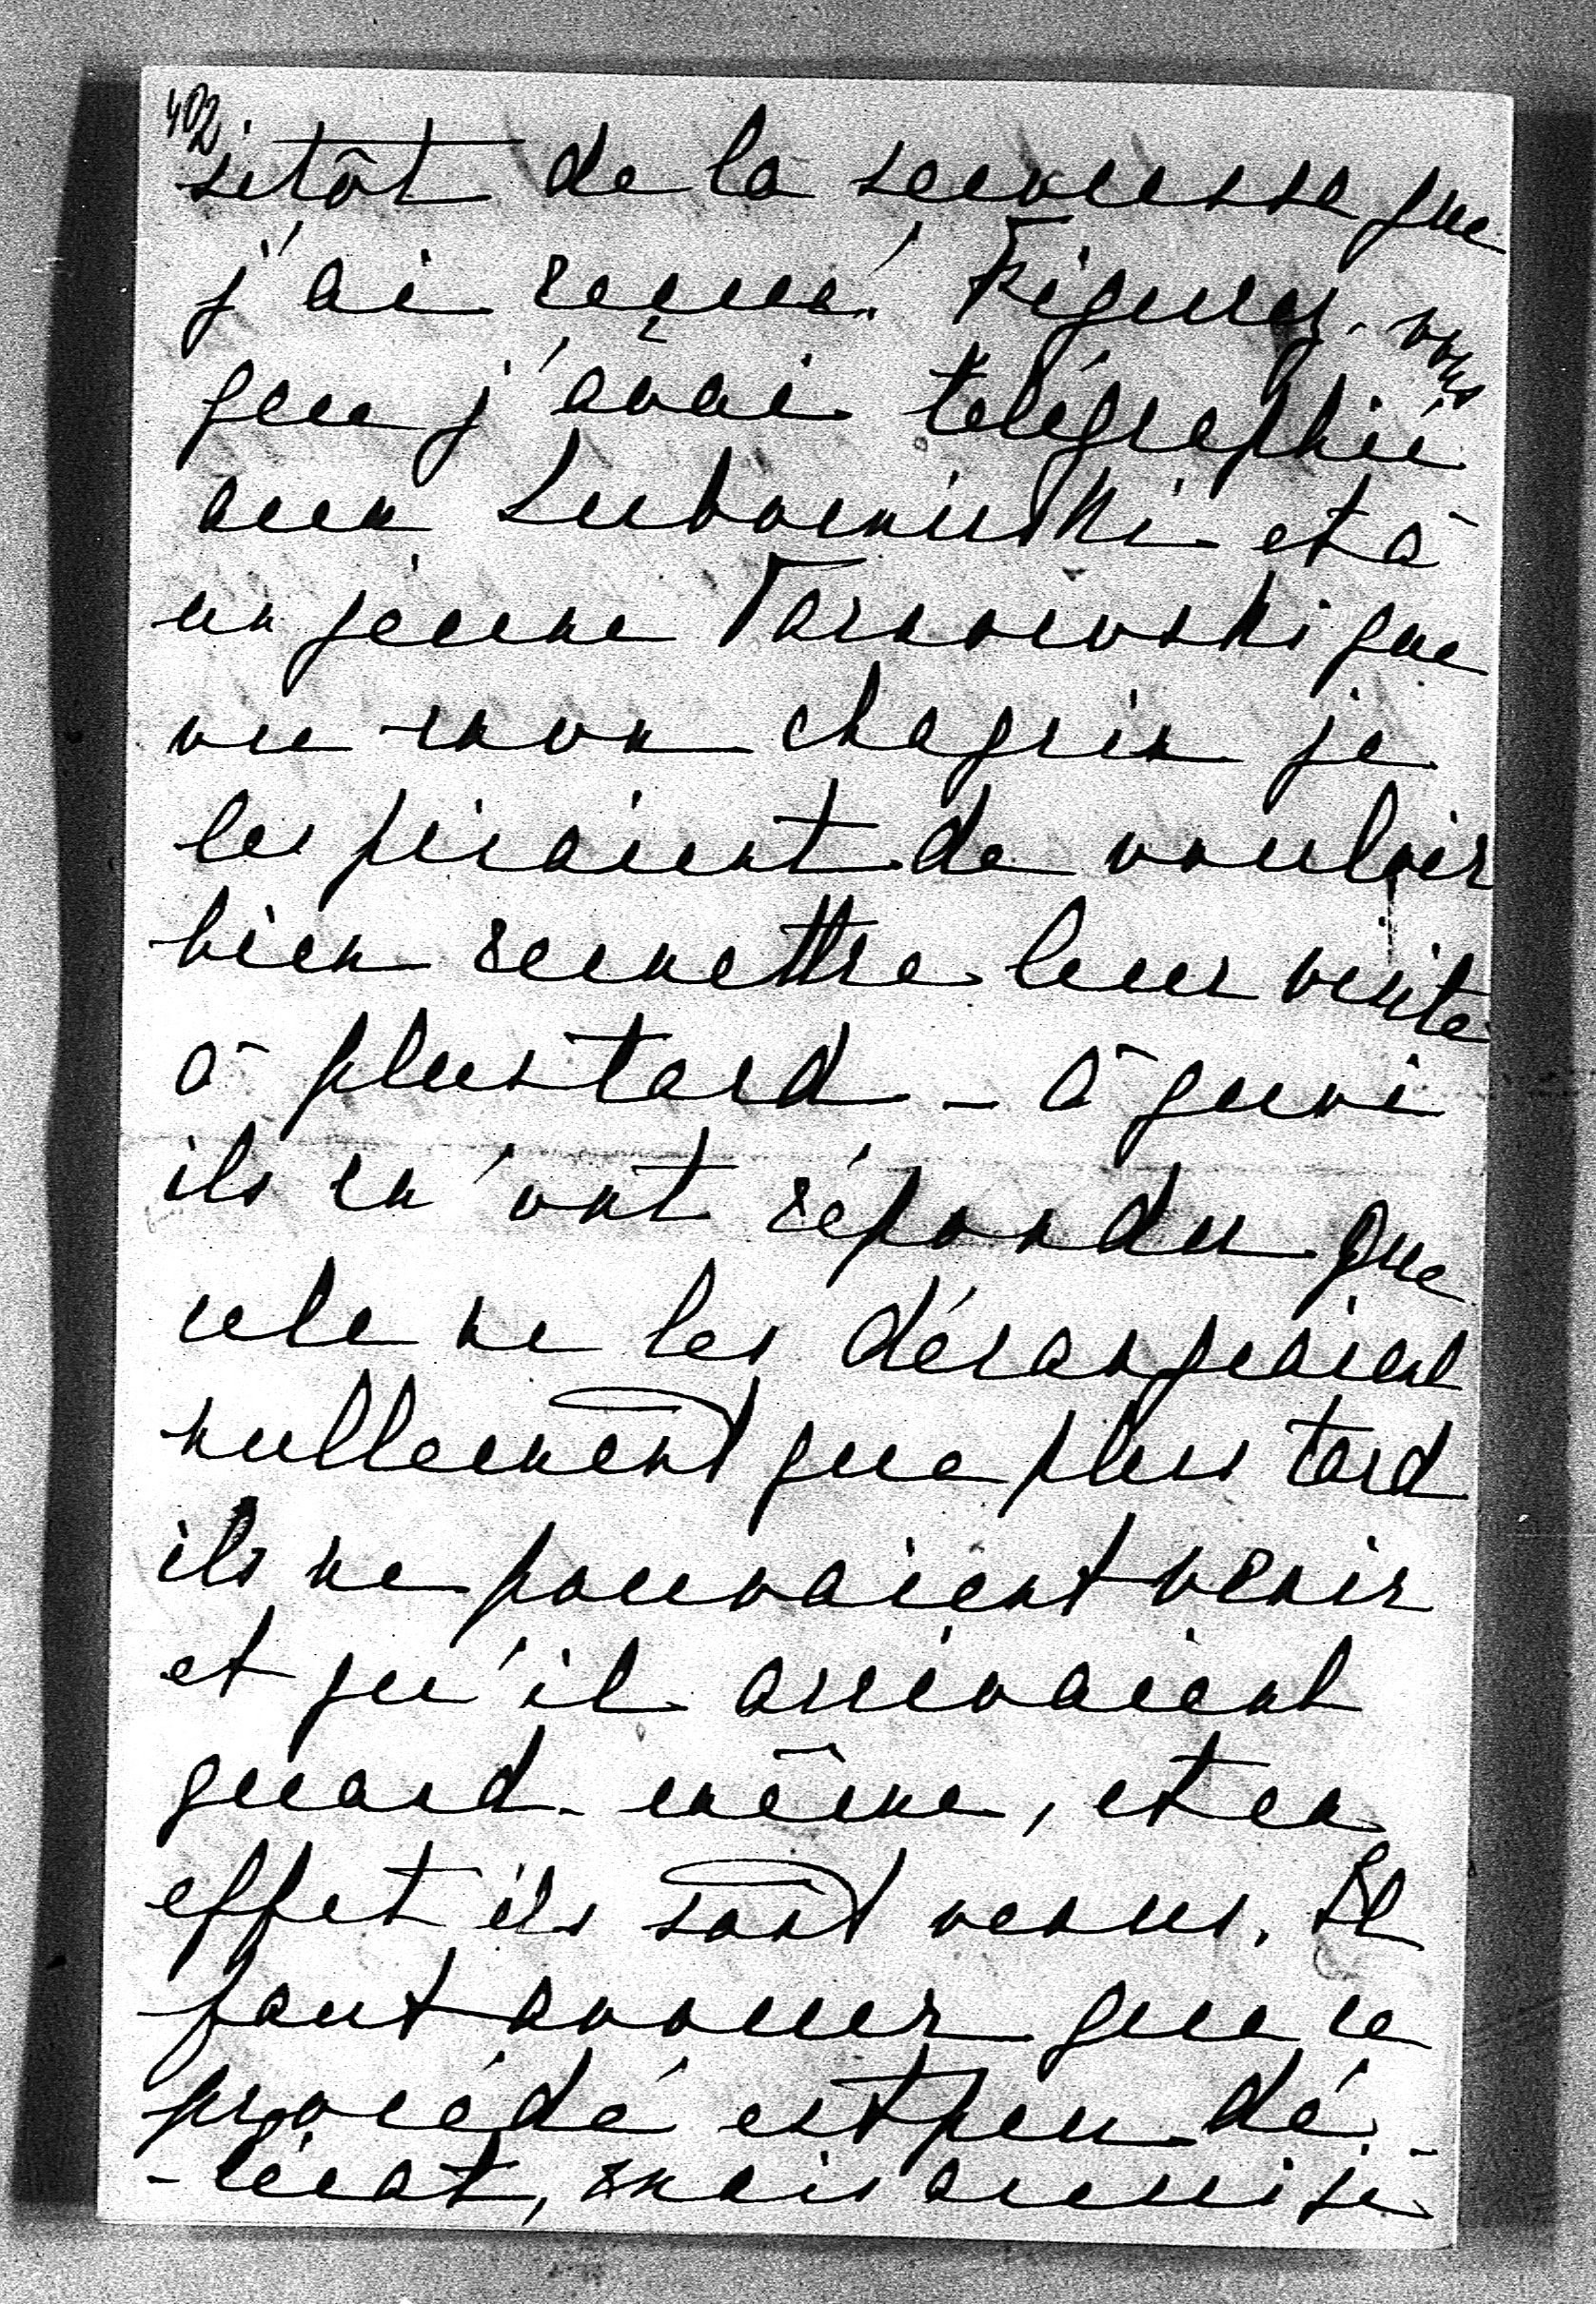 402
sitôt de la secousse que
j'ai reçue! Figurez-vous
que j'avai télégraphié
aux Lubomirski et à
un jeune Tarnowski que
vu mon chagrin je
les priaient de vouloir
bien remettre leur visite
à plus tard – à quoi
ils m'ont répondu que
cela ne les dérangeaient
nullement que plus tard
ils ne pouvaient venir
et qu'il arrivaient
quand-même, et en
effet ils sont venus. Il
faut avouer que ce
procédé est peu dé-
-licat, mais aussi je